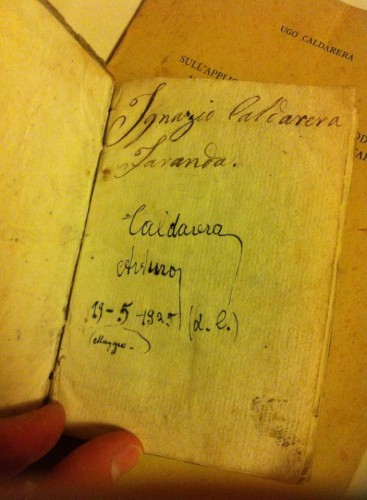 UGO CALDARERA
SULL'APPLI
Ignazio Caldarera
Faranda.
Caldarera
Arturo
19-5-1925 (d. C.)
(Maggio.)